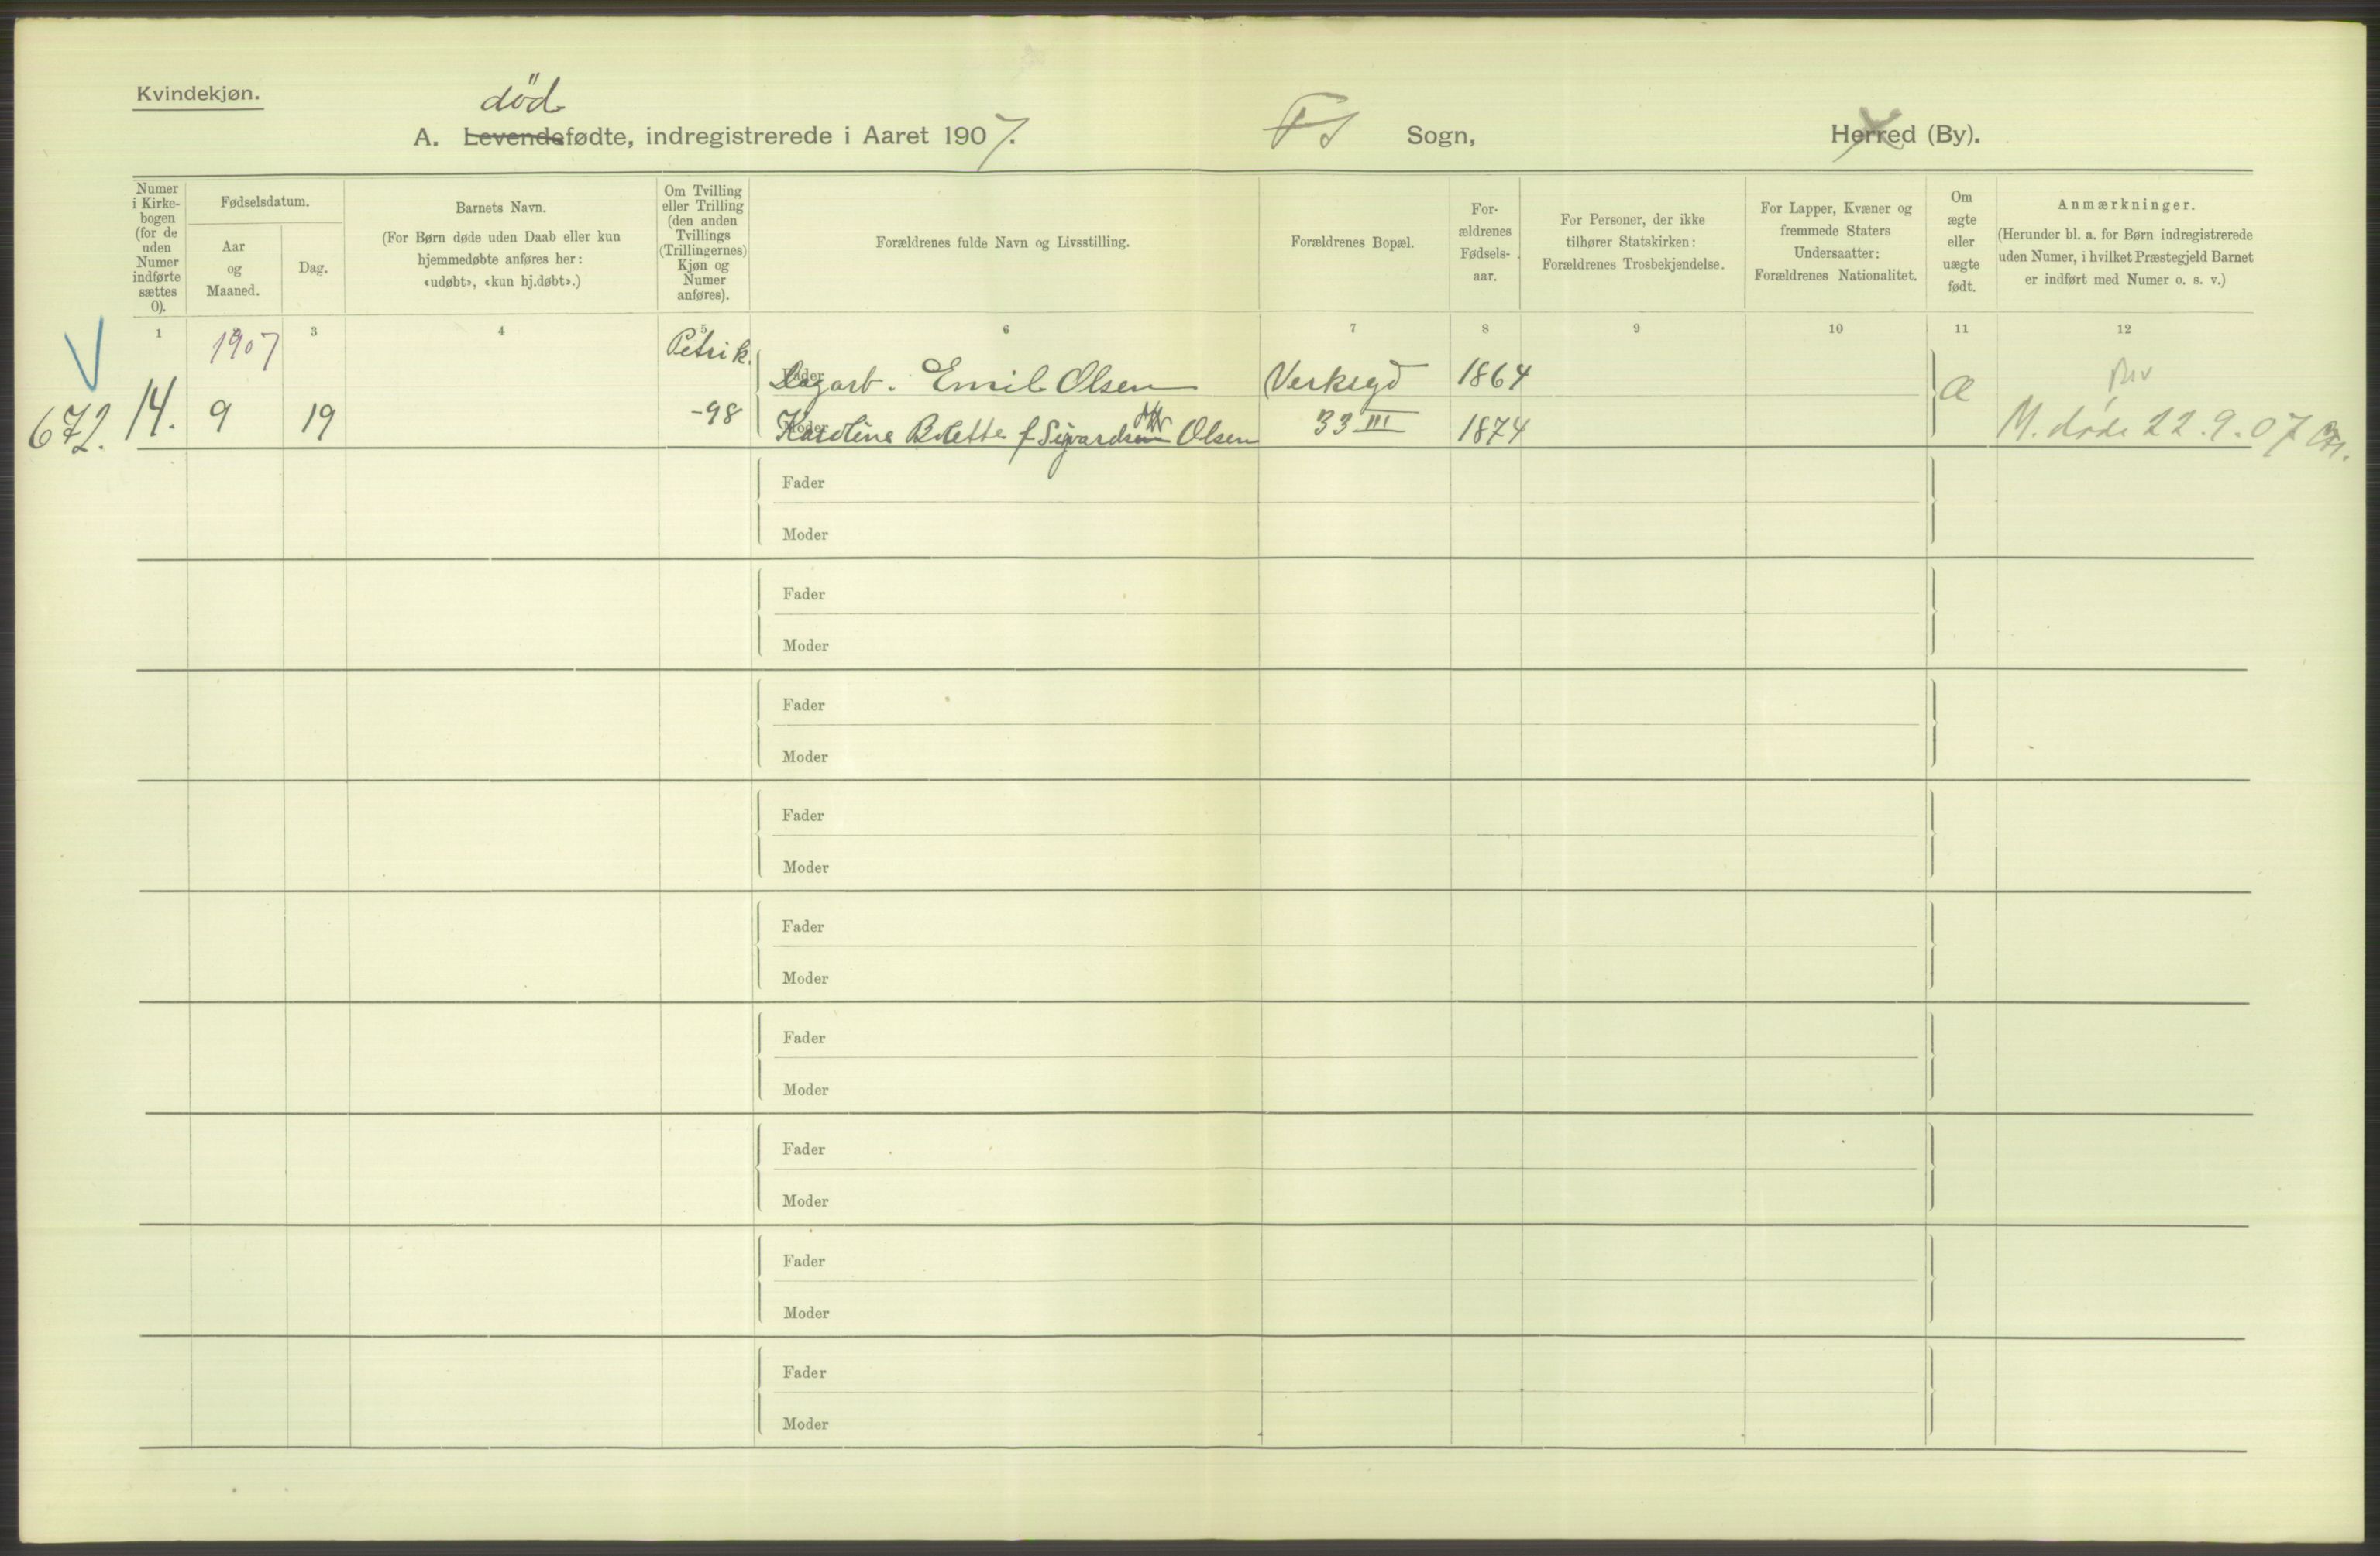 Kvindekjøn.
död
A. Levendefødte, indregistrerede i Aaret 1907. Sogn, Herred (By).
Numer i Kirke-bogen (for de uden Numer indførte sættes 0).
Fødselsdatum.
Aar og Maaned.
Dag.
Barnets Navn.
(For Børn døde uden Daab eller kun hjemmedøbte anføres her: «udøbt», «kun hj.døbt».)
Om Tvilling eller Trilling (den anden Tvillings (Trillingernes) Kjøn og Numer anføres).
Forældrenes fulde Navn og Livsstilling.
Forældrenes Bopæl.
For-ældrenes Fødsels-aar.
For Personer, der ikke tilhører Statskirken: Forældrenes Trosbekjendelse.
For Lapper, Kvæner og fremmede Staters Undersaatter: Forældrenes Nationalitet.
Om ægte eller uægte født.
Anmærkninger.
(Herunder bl. a. for Børn indregistrerede uden Numer, i hvilket Præstegjeld Barnet er indført med Numer o. s. v.)
1 2 3 4 5 6 7 8 9 10 11 12
1907 Petrik.
Fader Dagarb. Emil Olsen Verksgd 1864
672. 14. 9 19 -98 Moder Karoline Bolette f Sigvardsen Olsen 33 III 1874 Æ M. døde 22.9.07
Fader
Moder
Fader
Moder
Fader
Moder
Fader
Moder
Fader
Moder
Fader
Moder
Fader
Moder
Fader
Moder
Fader
Moder